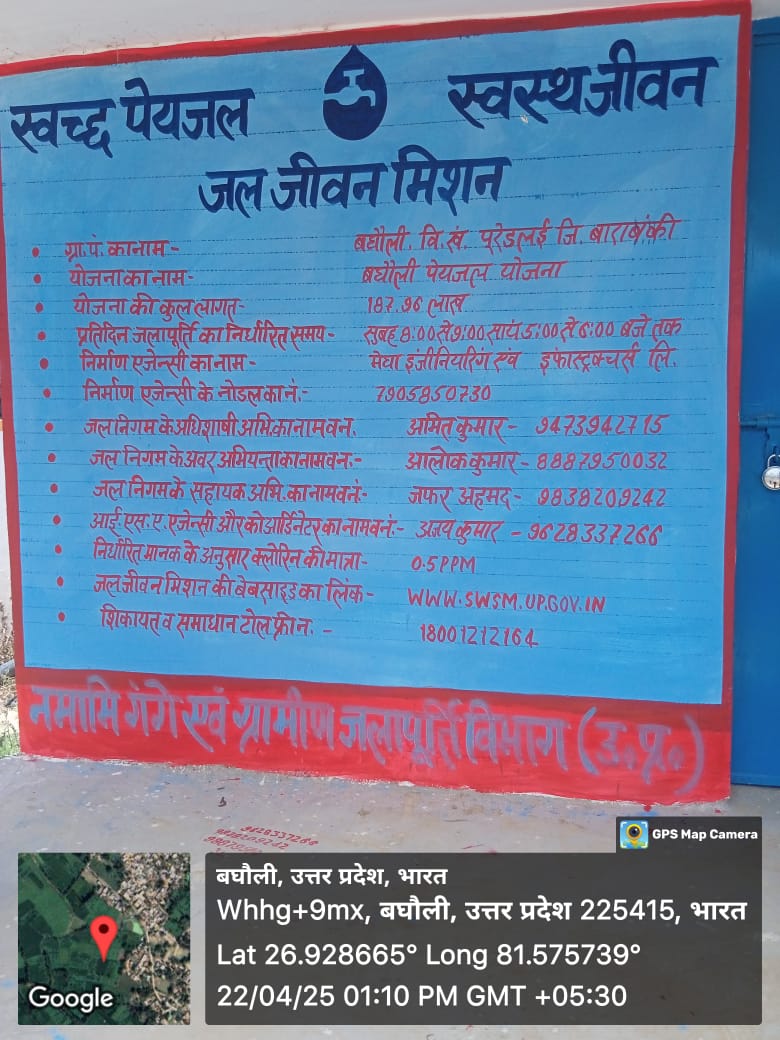 स्वच्छ पेयजल स्वस्थ जीवन
जल जीवन मिशन
• ग्रा.पं. का नाम - बघौली. वि.खं. पूरेडलई जि. बाराबंकी
• योजना का नाम - बघौली पेयजल योजना
• योजना की कुल लागत - 187.96 लाख
• प्रतिदिन जलापूर्ति का निर्धारित समय - सुबह 8:00 से 9:00 सायं 5:00 से 6:00 बजे तक
• निर्माण एजेन्सी का नाम - मेघा इंजीनियरिंग एवं इंफास्ट्रक्चर्स लि.
• निर्माण एजेन्सी के नोडल का नं:- 7905850730
• जल निगम के अधिशाषी अभि. का नाम व न. अमित कुमार - 9473942715
• जल निगम के अवर अभियन्ता का नाम व नं:- आलोक कुमार - 8887950032
• जल निगम के सहायक अभि. का नाम व नं:- जफर अहमद - 9838209242
• आई. एस. ए. एजेन्सी और कोआर्डिनेटर का नाम व नं:- अजय कुमार - 9628337266
• निर्धारित मानक के अनुसार क्लोरिन की मात्रा - 0.5PPM
• जल जीवन मिशन की वेबसाइड का लिंक - WWW.SWSM.UP.GOV.IN
• शिकायत व समाधान टोल फ्री न. - 18001212164
नमामि गंगे एवं ग्रामीण जलापूर्ति विभाग (उ.प्र.)
9838209242
GPS Map Camera
बघौली, उत्तर प्रदेश, भारत
Whhg+9mx, बघौली, उत्तर प्रदेश 225415, भारत
Lat 26.928665° Long 81.575739°
22/04/25 01:10 PM GMT +05:30
Google